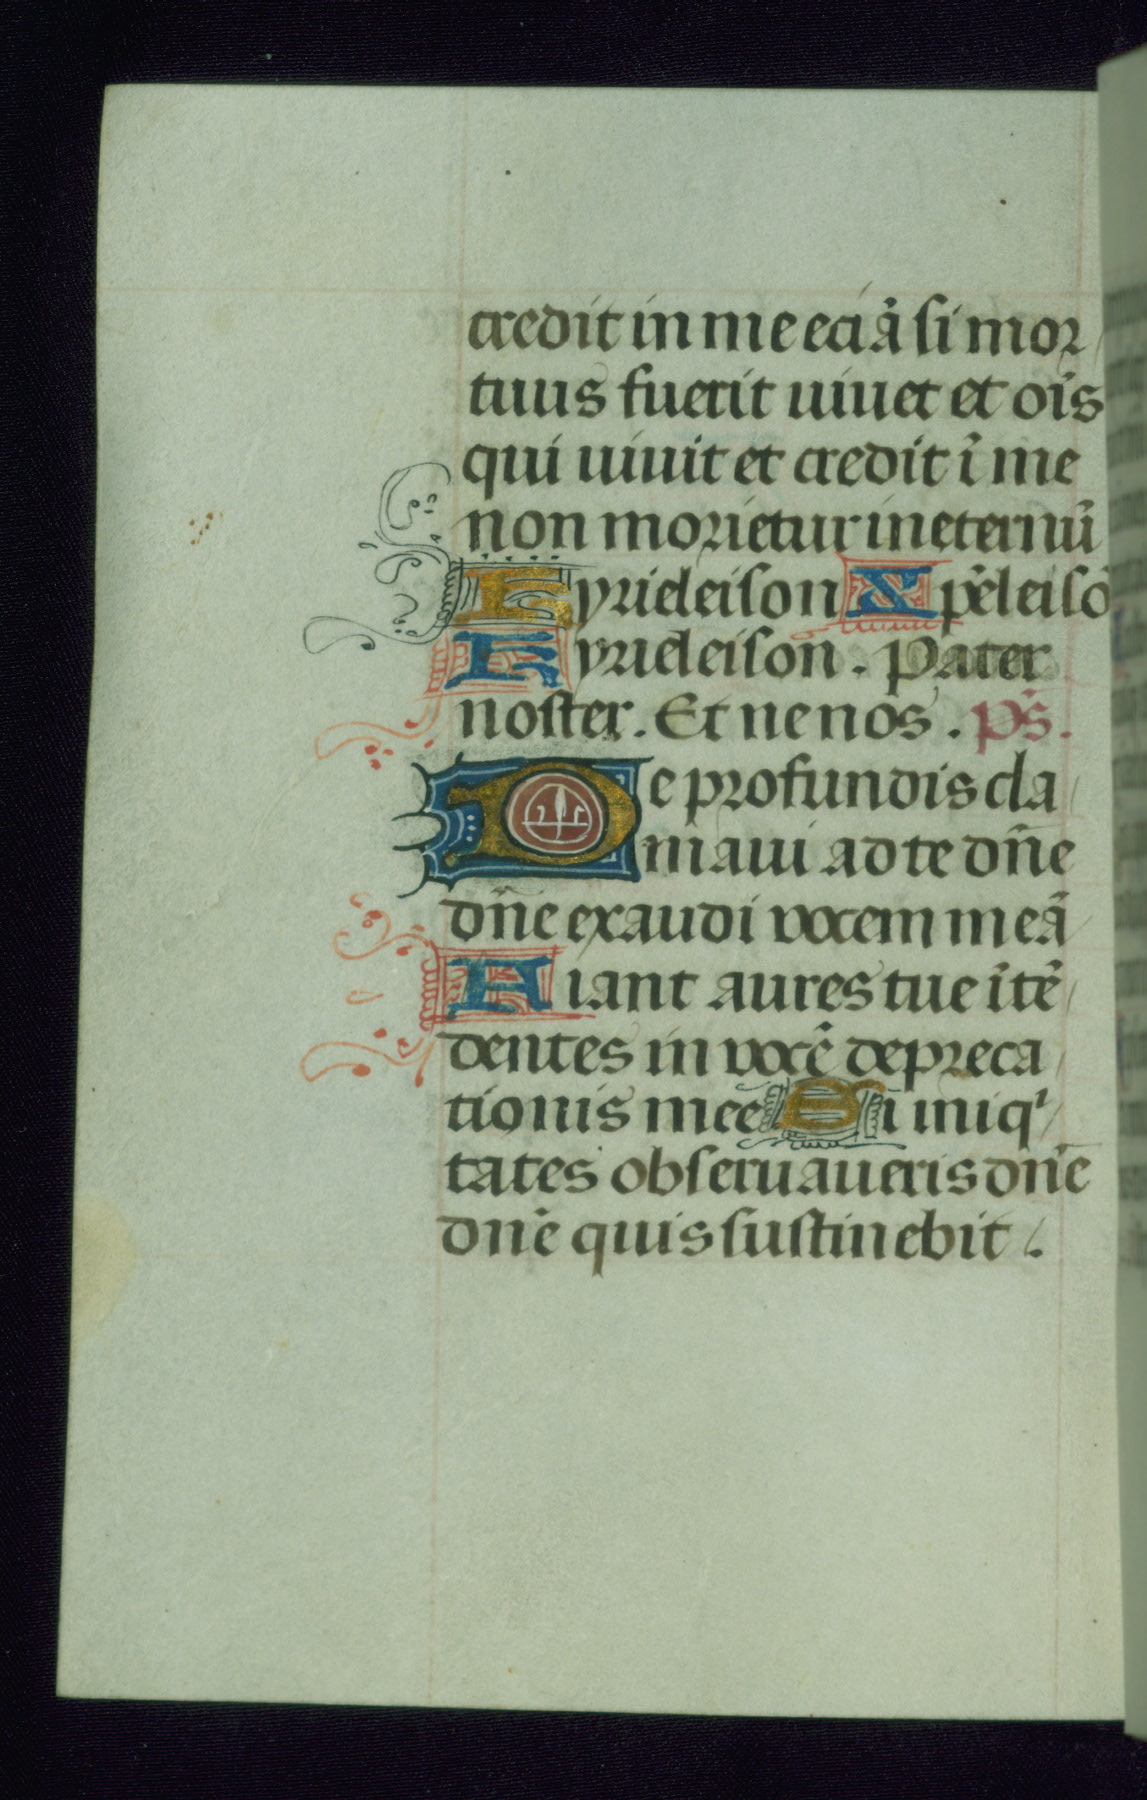 credit in me eciā si mor
tuus fuerit uiuet et oīs
qui uiuit et credit ī me
non morietur in eternū
Kyrieleison Xp̄eleisō
Kyrieleison. Pater
noster. Et ne nos. p̄s.
De profundis cla
maui ad te dn̄e
dn̄e exaudi vocem meā
Fiant aures tue ītē
dentes in vocē depreca
tionis mee Si iniqⁱ
tates obseruaueris dn̄e
dn̄e quis sustinebit.